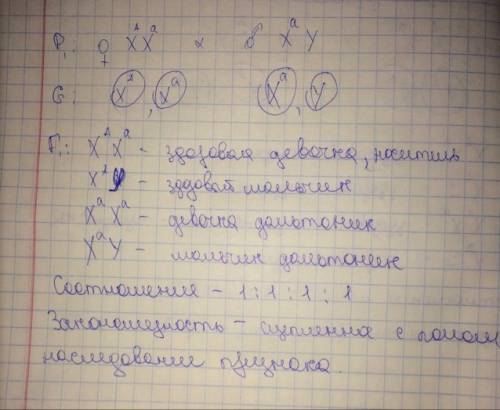 P₁: ♀ XᴬXᵃ × ♂ XᵃY
G: Xᴬ, Xᵃ Xᵃ, Y
F₁: XᴬXᵃ – здоровая девочка, носитель
XᴬY – здовый мальчик
XᵃXᵃ – девочка дальтоник
XᵃY – мальчик дальтоник
Соотношение – 1:1:1:1
Закономерность – сцепленна с полом
наследование признака.